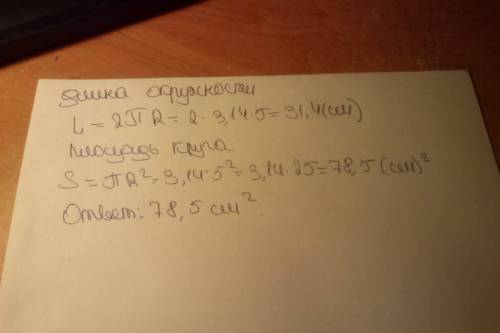 Длина окружности
L = 2πR = 2 · 3,14 · 5 = 31,4 (см)
Площадь круга
S = πR² = 3,14 · 5² = 3,14 · 25 = 78,5 (см)²
Ответ: 78,5 см²